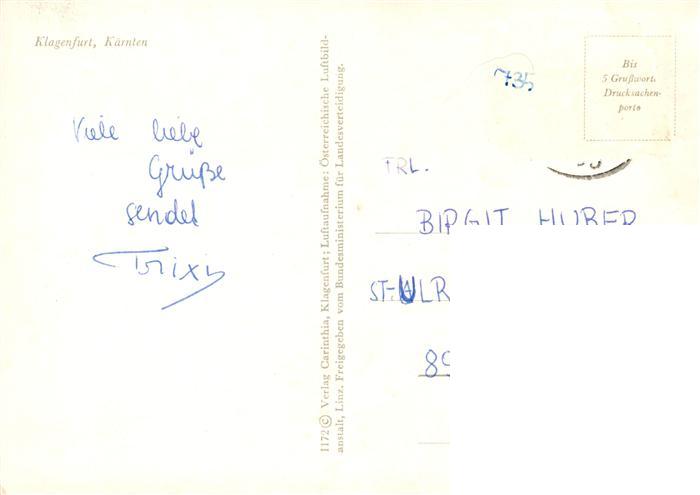 Klagenfurt, Kärnten
Viele liebe
Grüße
sendet
Trixi
1172 © Verlag Carinthia, Klagenfurt; Luftaufnahme: Österreichische Luftbild-
anstalt, Linz. Freigegeben vom Bundesministerium für Landesverteidigung.
735
Bis
5 Grußwort.
Drucksachen-
porto
FRL.
BIRGIT
ST. ULR